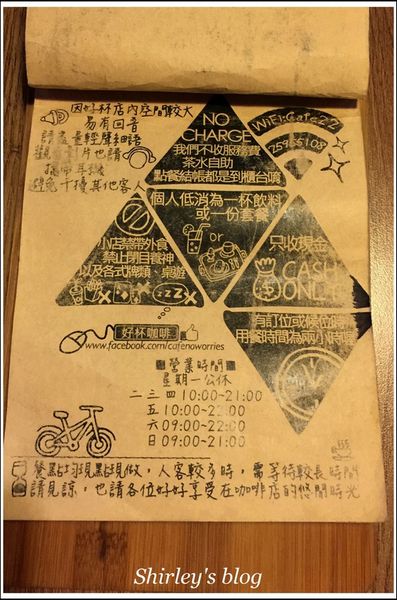 因好杯店內空間較大
易有回音
請盡量輕聲細語
觀看影片也請
攜帶耳機
避免干擾其他客人
NO
CHARGE
我們不收服務費
茶水自助
點餐結帳都是到櫃台唷
WiFi:Cafe22
25965108
個人低消為一杯飲料
或一份套餐
小店禁帶外食
禁止閉目養神
以及各式牌類、桌遊
zzz
只收現金
CASH
ONLY
有訂位或候位時
用餐時間為兩小時喔
好杯咖啡
www.facebook.com/cafenoworries
營業時間
星期一公休
二三四 10:00~21:00
五 10:00~22:00
六 09:00~22:00
日 09:00~21:00
餐點均現點現做，人客較多時，需等待較長時間
請見諒，也請各位好好享受在咖啡店的悠閒時光
Shirley's blog